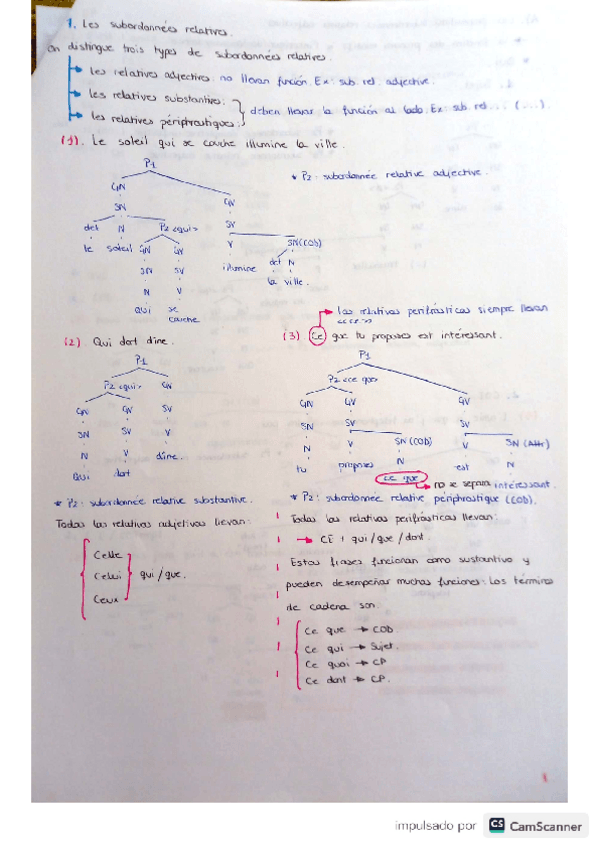 1. Les subordonnées relatives.
On distingue trois types de subordonnées relatives.
les relatives adjectives. no llevan función. Ex: sub. rel. adjective.
les relatives substantives.
les relatives périphrastiques.
deben llevar la función al lado. Ex: sub. rel... (...).
(1). Le soleil qui se couche illumine la ville.
P1
* P2: subordonnée relative adjective.
GN GV
SN SV
det N P2 <qui> V SN (COD)
le soleil GN GV illumine det N
SN SV la ville.
N V
qui se couche
las relativas perifrásticas siempre llevan
(2). Qui dort dîne.
(3) Ce que tu proposes est intéressant.
P1
P2 <qui> GV
GN GV SV
SN SV V
N V dîne.
Qui dort
P1
P2 <ce que>
GN GV GV
SN SV SV
N V SN (COD) V SN (Attr)
tu proposes N est N
ce que no se separa intéressant.
* P2: subordonnée relative substantive.
Todas las relativas adjetivas llevan:
Celle
Celui qui / que.
Ceux
* P2: subordonnée relative périphrastique (COD).
Todas las relativas perifrásticas llevan:
CE + qui / que / dont.
Estas frases funcionan como sustantivo y
pueden desempeñar muchas funciones. Los términos
de cadena son:
Ce que → COD.
Ce qui → Sujet.
Ce quoi → CP
Ce dont → CP.
1
impulsado por CS CamScanner